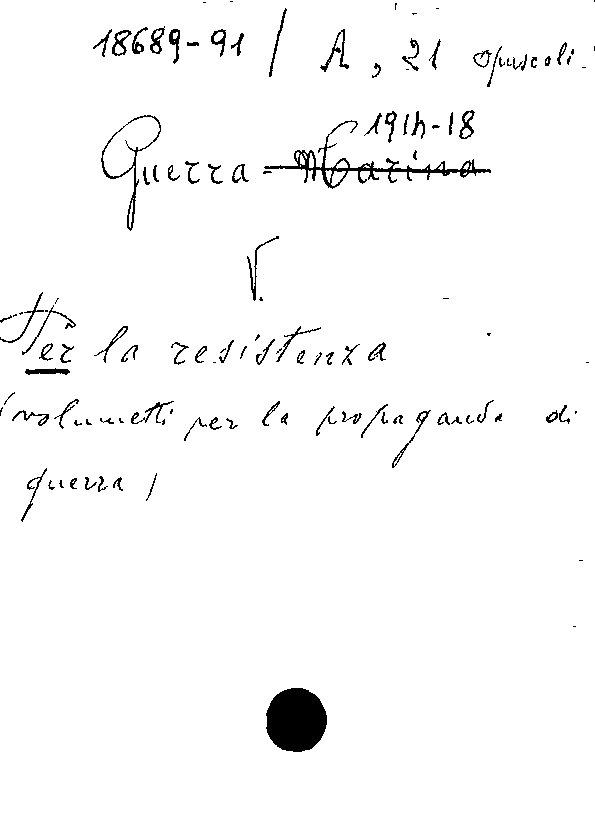 18689-91 / A, 21 opuscoli.
1914-18
Guerra - Marina
V.
Per la resistenza
(volumetti per la propaganda di
guerra)